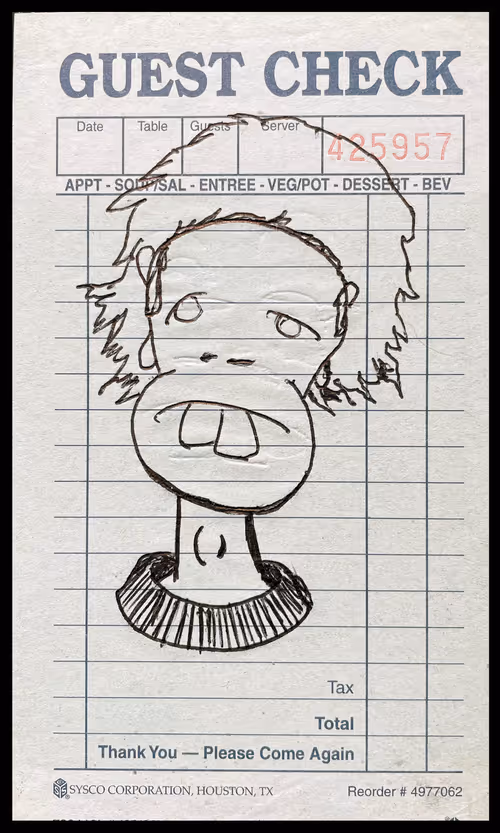 GUEST CHECK
Date Table Guests Server
425957
APPT - SOUP/SAL - ENTREE - VEG/POT - DESSERT - BEV
Tax
Total
Thank You — Please Come Again
SYSCO CORPORATION, HOUSTON, TX Reorder # 4977062